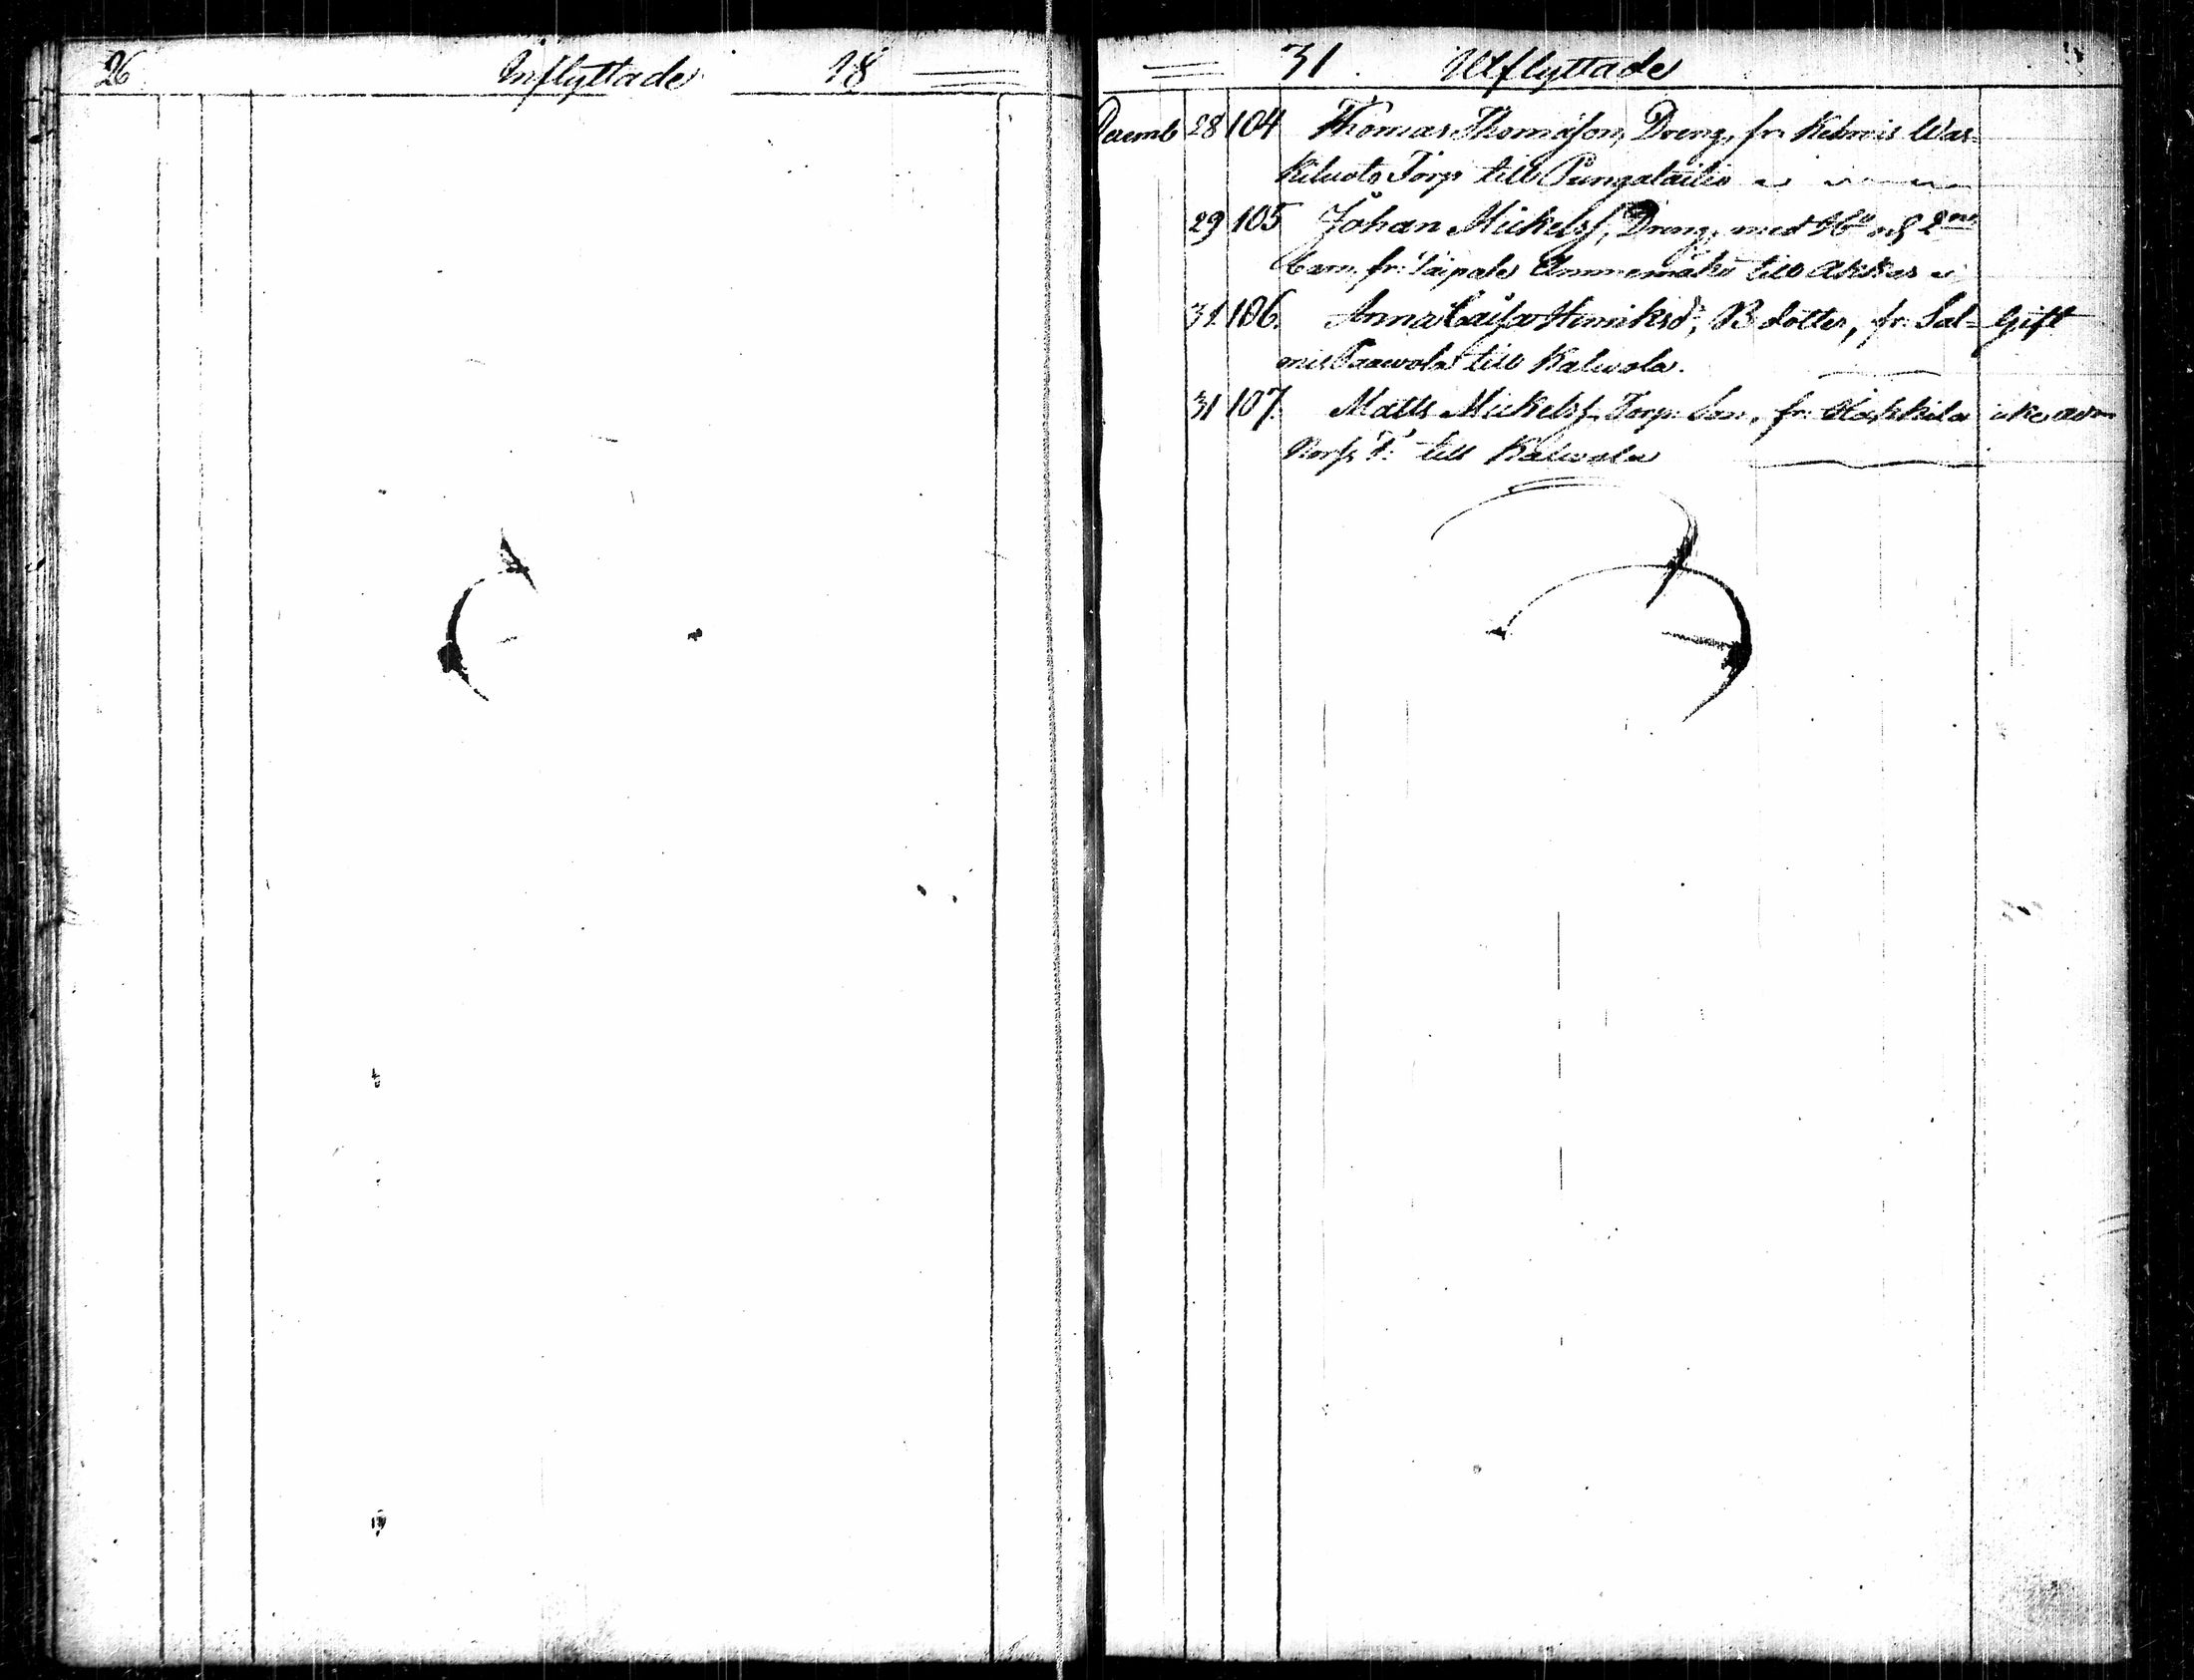 26 Inflyttade 18
31. Utflyttade
Decemb 28 104 Thomas Thomasson, Dreng, fr. Kelmis Was-
kiluoto Torp till Pungalaitio
29 105 Johan Mickelss, Dreng, med Hu och 2ne
barn, fr. Taipale Ammemäki till Akkas
31. 106. Anna Caisa Henriksdr, B dotter, fr. Sal- Gift
mis Paavola till Kalvola.
31 107. Matts Mickelss, Torp. Son, fr. till Kalvola